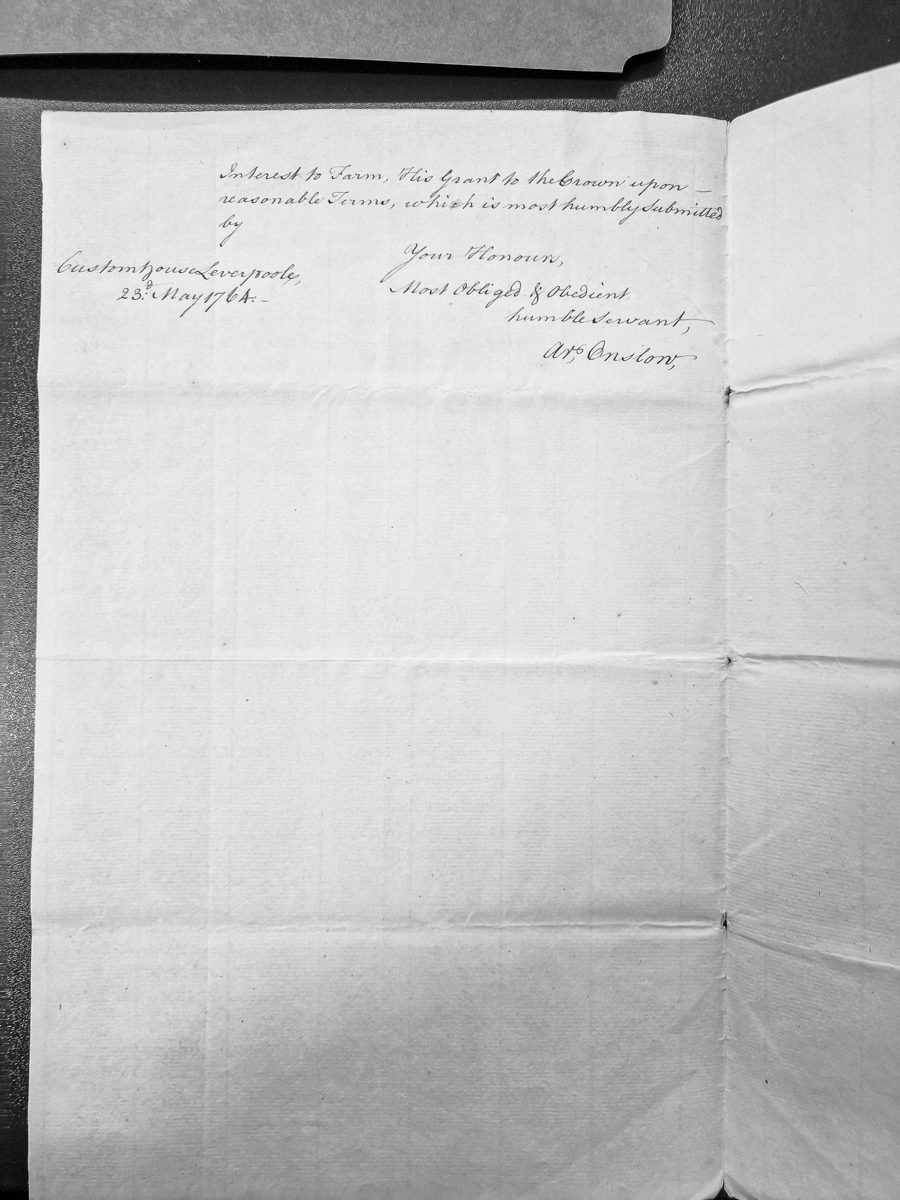 Interest to Farm, His Grant to the Crown upon –
reasonable Terms, which is most humbly Submitted
by
Your Honours,
Customhouse Leverpoole,
23.d May 1764. –
Most Obliged & Obedient
humble Servant,
Ar. Onslow,